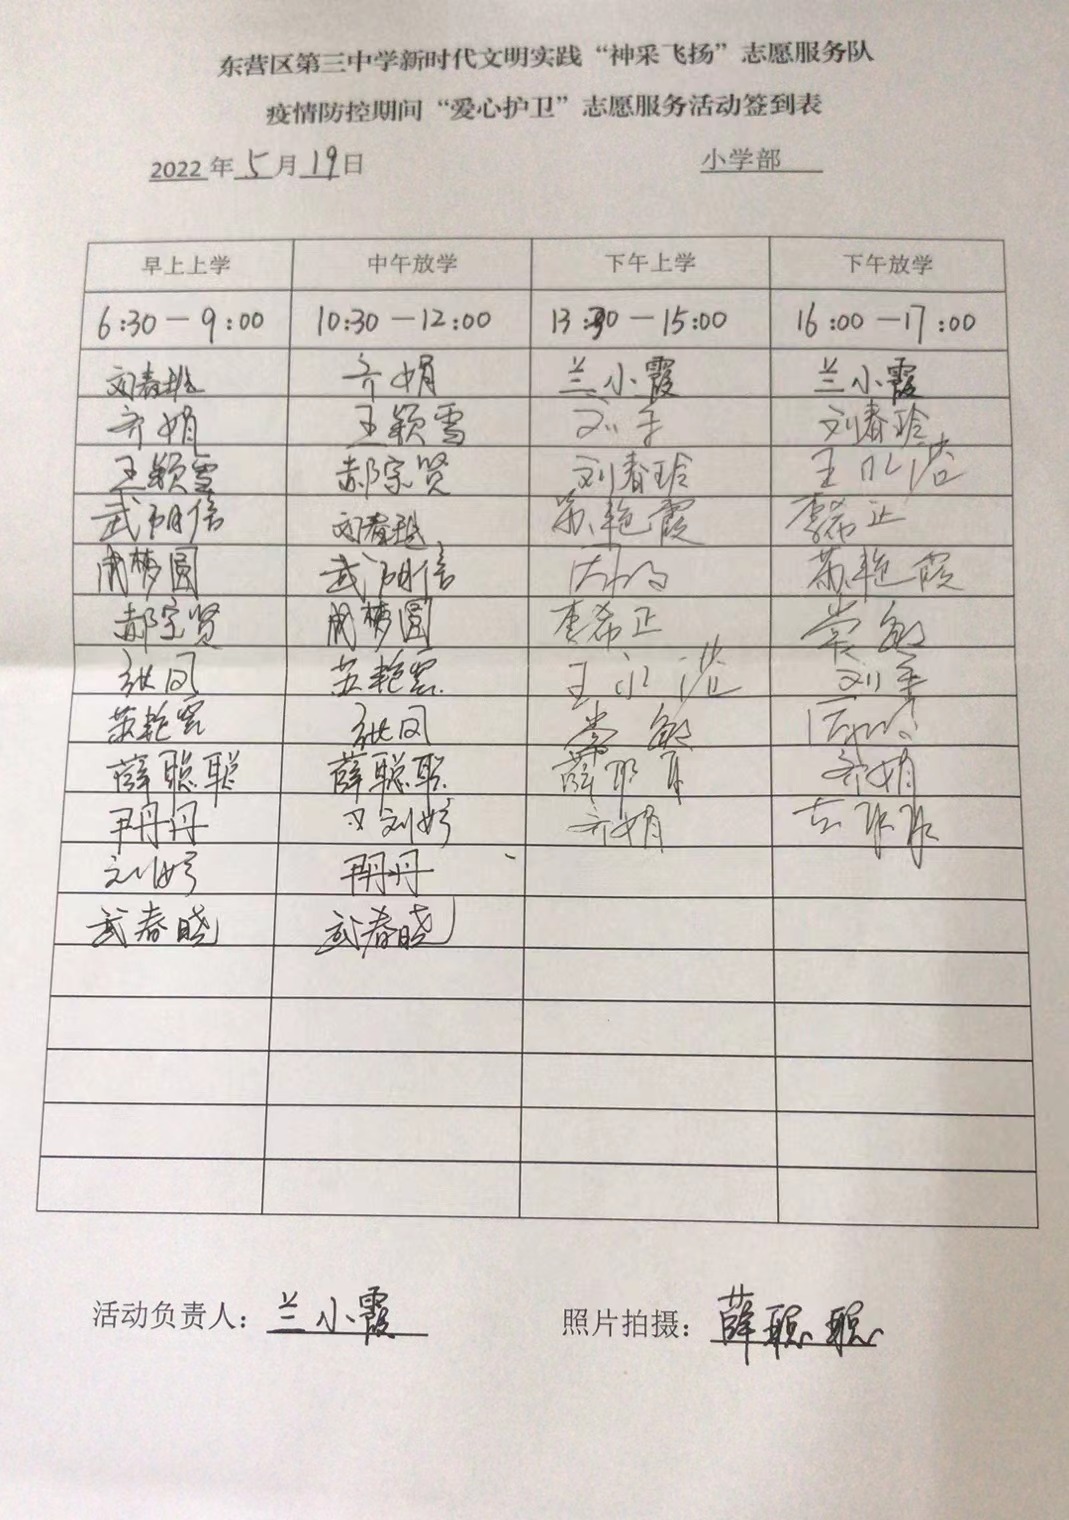 东营区第三中学新时代文明实践“神采飞扬”志愿服务队
疫情防控期间“爱心护卫”志愿服务活动签到表
2022年5月19日 小学部
早上上学 中午放学 下午上学 下午放学
6:30－9:00 10:30－12:00 13:30－15:00 16:00－17:00
齐娟 兰小霞 兰小霞
齐娟 王颖雪 刘春玲
王颖雪 郝宗贤 刘春玲
武明信 苏艳霞 李希正
周梦圆 武明信 苏艳霞
郝宗贤 周梦圆 李希正 常敏
张凤 苏艳霞
苏艳霞 张凤 常敏
薛聪聪 薛聪聪 薛聪聪 齐娟
尹丹丹 刘婷 齐娟
刘婷 尹丹丹
武春晓 武春晓
活动负责人：兰小霞 照片拍摄：薛聪聪